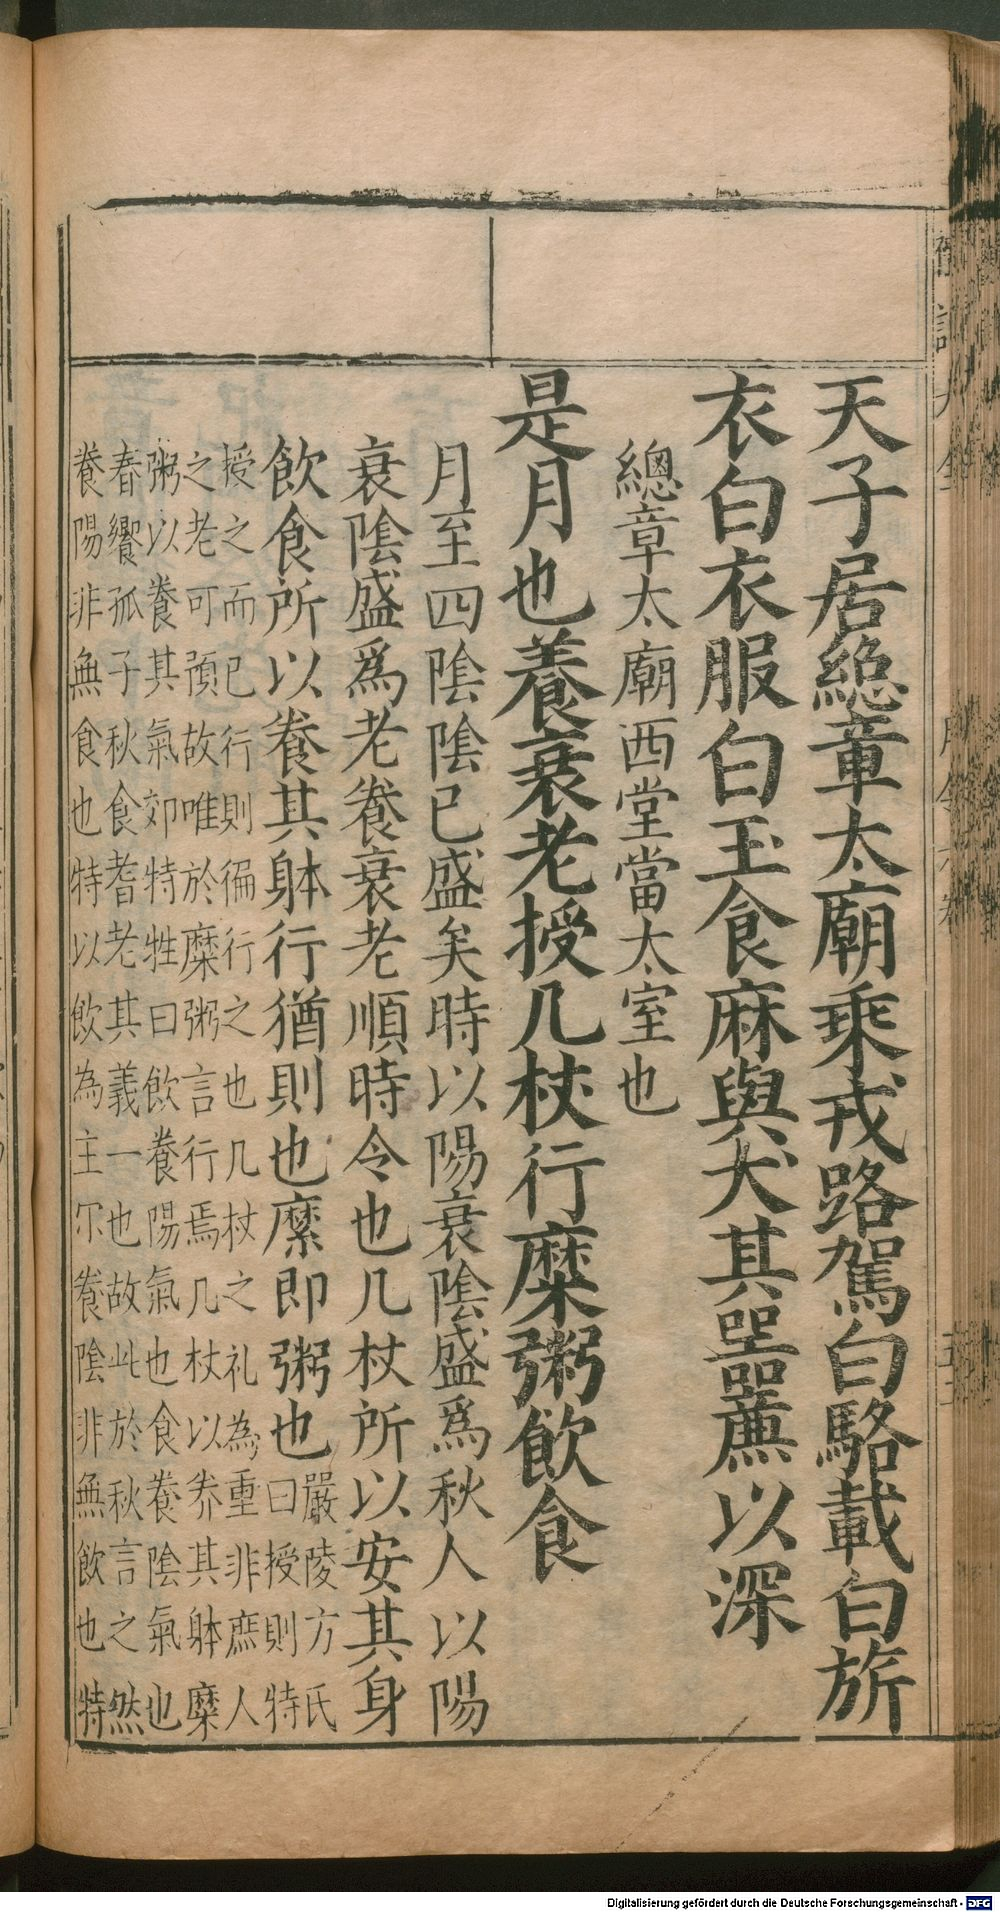 天子居總章太廟乘戎路駕白駱載白旂
衣白衣服白玉食麻與犬其噐薕以深
總章太廟西堂當太室也
是月也養衰老授几杖行糜粥飲食
月至四陰陰已盛矣時以陽衰陰盛爲秋人以陽
衰陰盛爲老養衰老順時令也几杖所以安其身
飲食所以養其躰行猶則也糜即粥也
嚴陵方氏
曰授則特
授之而已行則徧行之也几杖之礼為重非庶人
之老可預故唯於糜粥言行焉几杖以养其躰糜
粥以養其氣郊特牲曰飲養陽氣也食養陰氣也
春饗孤子秋食耆老其義一也故此於秋言之然
養陽非無食也特以飲為主尓養陰非無飲也特
Digitalisierung gefördert durch die Deutsche Forschungsgemeinschaft - DFG